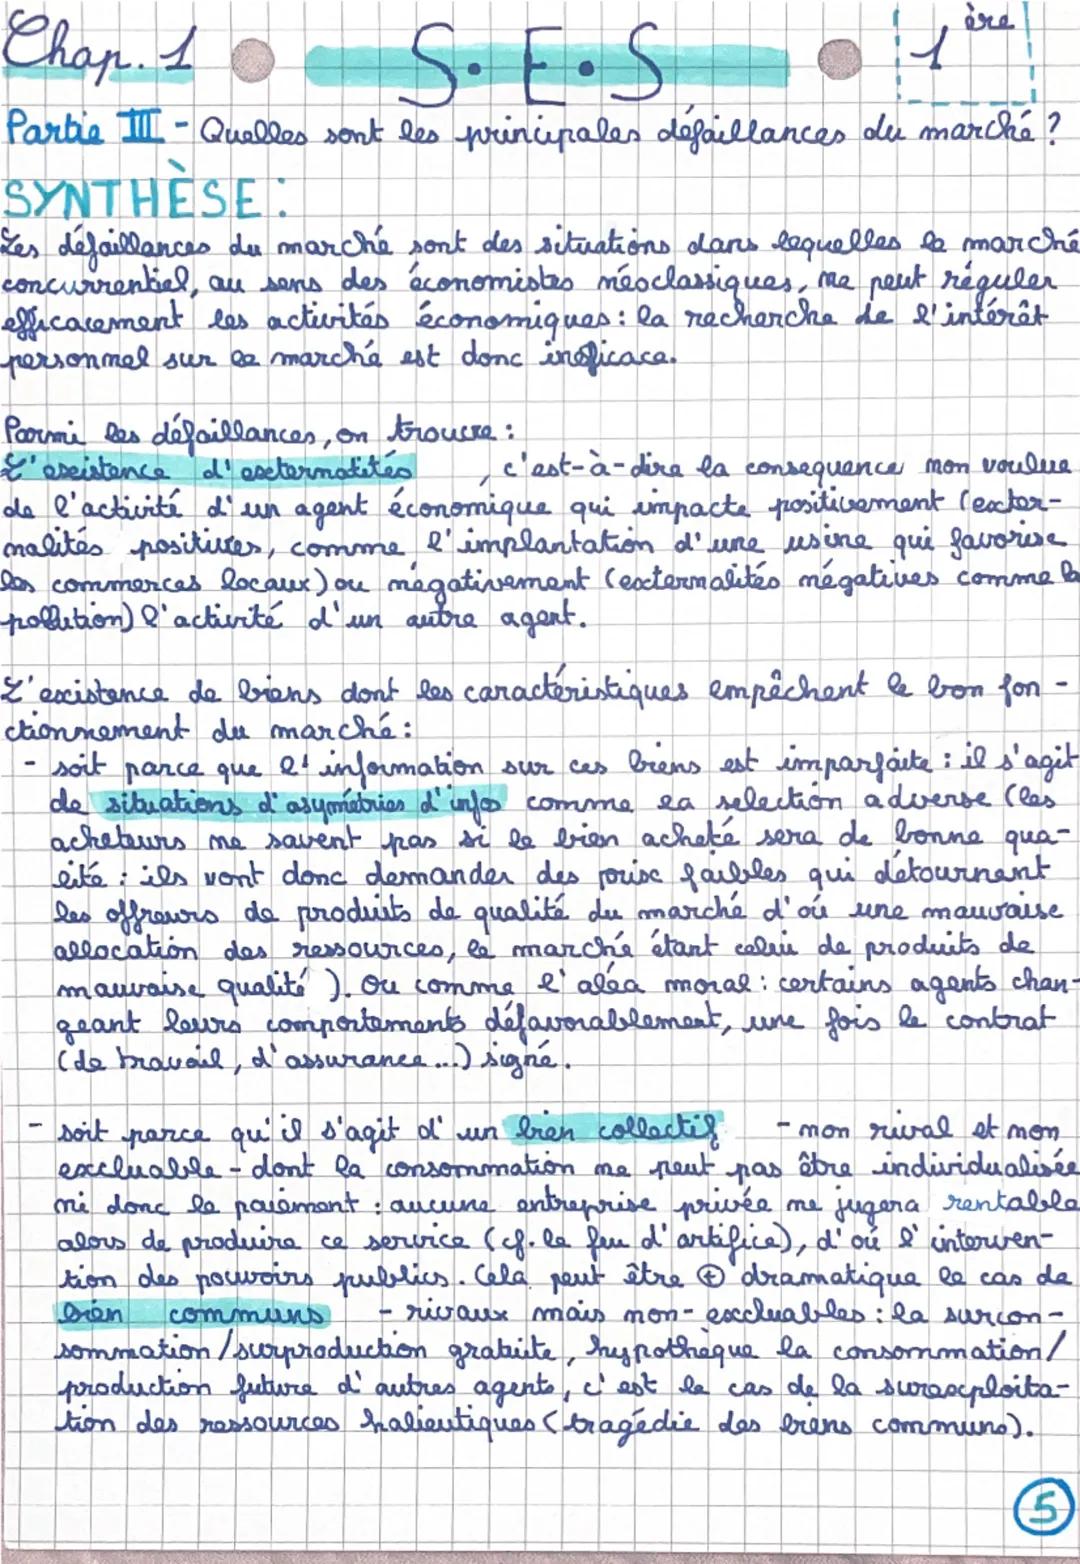 Chap. 1 S.E.S 1ère
Partie III - Quelles sont les principales défaillances du marché ?
SYNTHÈSE :
Les défaillances du marché sont des situations dans lequelles le marché
concurrentiel, au sens des économistes néoclassiques, ne peut réguler
efficacement les activités économiques : la recherche de l'intérêt
personnel sur le marché est donc inefficace.
Parmi les défaillances, on trouve :
L'existence d'externalités , c'est-à-dire la consequence non voulue
de l'activité d'un agent économique qui impacte positivement (exter-
nalités positives, comme l'implantation d'une usine qui favorise
les commerces locaux) ou négativement (externalités négatives comme la
pollution) l'activité d'un autre agent.
L'existence de biens dont les caractéristiques empêchent le bon fon-
ctionnement du marché :
- soit parce que l'information sur ces biens est imparfaite : il s'agit
de situations d'asymétries d'infos comme la selection adverse (les
acheteurs ne savent pas si le bien acheté sera de bonne qua-
lité : ils vont donc demander des prix faibles qui détournent
les offreurs de produits de qualité du marché d'où une mauvaise
allocation des ressources, le marché étant celui de produits de
mauvaise qualité ). Ou comme l'aléa moral : certains agents chan-
geant leurs comportements défavorablement, une fois le contrat
(de travail, d'assurance ...) signé.
- soit parce qu'il s'agit d'un bien collectif - non rival et non
excluable - dont la consommation ne peut pas être individualisée
ni donc le paiement : aucune entreprise privée ne jugera rentable
alors de produire ce service (cf. le feu d'artifice), d'où l'interven-
tion des pouvoirs publics. Cela peut être ⊕ dramatique le cas de
bien communs - rivaux mais non-excluables : la surcon-
sommation/surproduction gratuite, hypothèque la consommation/
production future d'autres agents, c'est le cas de la surexploita-
tion des ressources halieutiques (tragédie des biens communs).
5